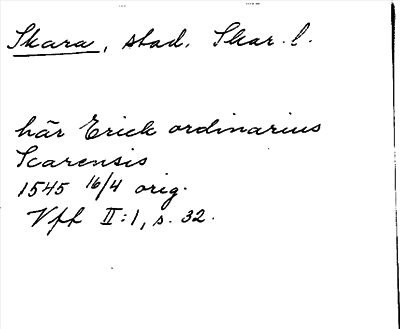 Skara, stad. Skar. l.
här Erick ordinarius
Scarensis
1545 16/4 orig.
Vfh II:1, s. 32.